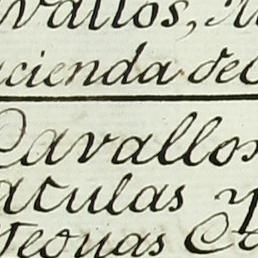 vallos,
cienda de
Cavallos
aculas y
Yeguas